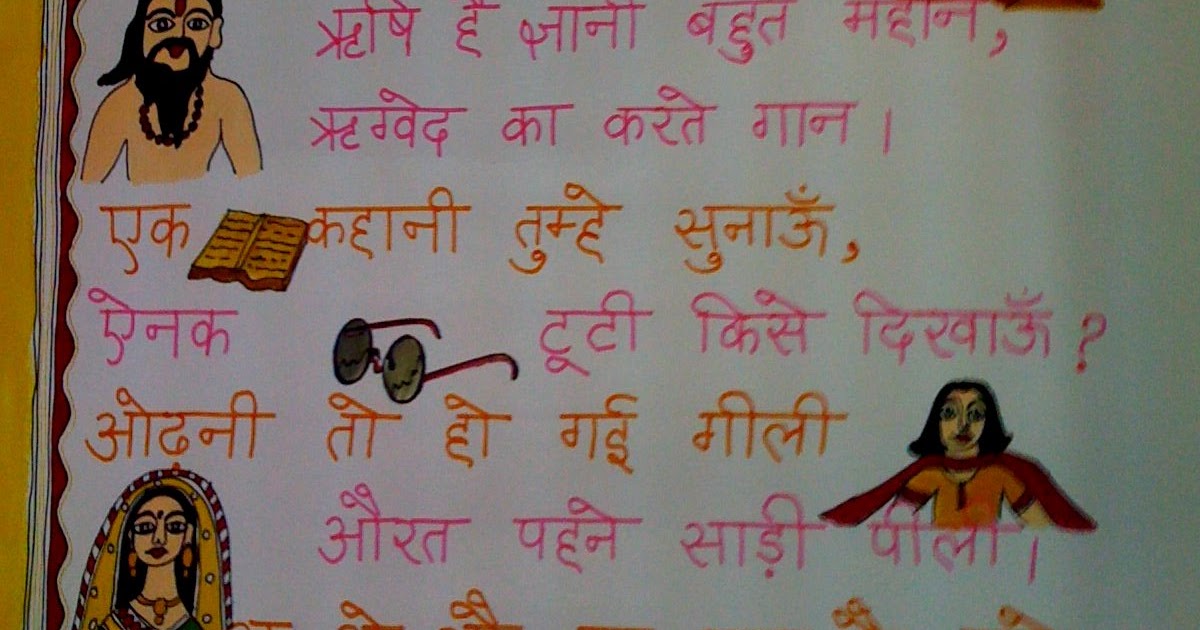 ऋषि है ज्ञानी बहुत महान,
ऋग्वेद का करते गान ।
एक कहानी तुम्हे सुनाऊँ,
ऐनक टूटी किसे दिखाऊँ ?
ओढ़नी तो हो गई गीली
औरत पहने साड़ी पीली ।